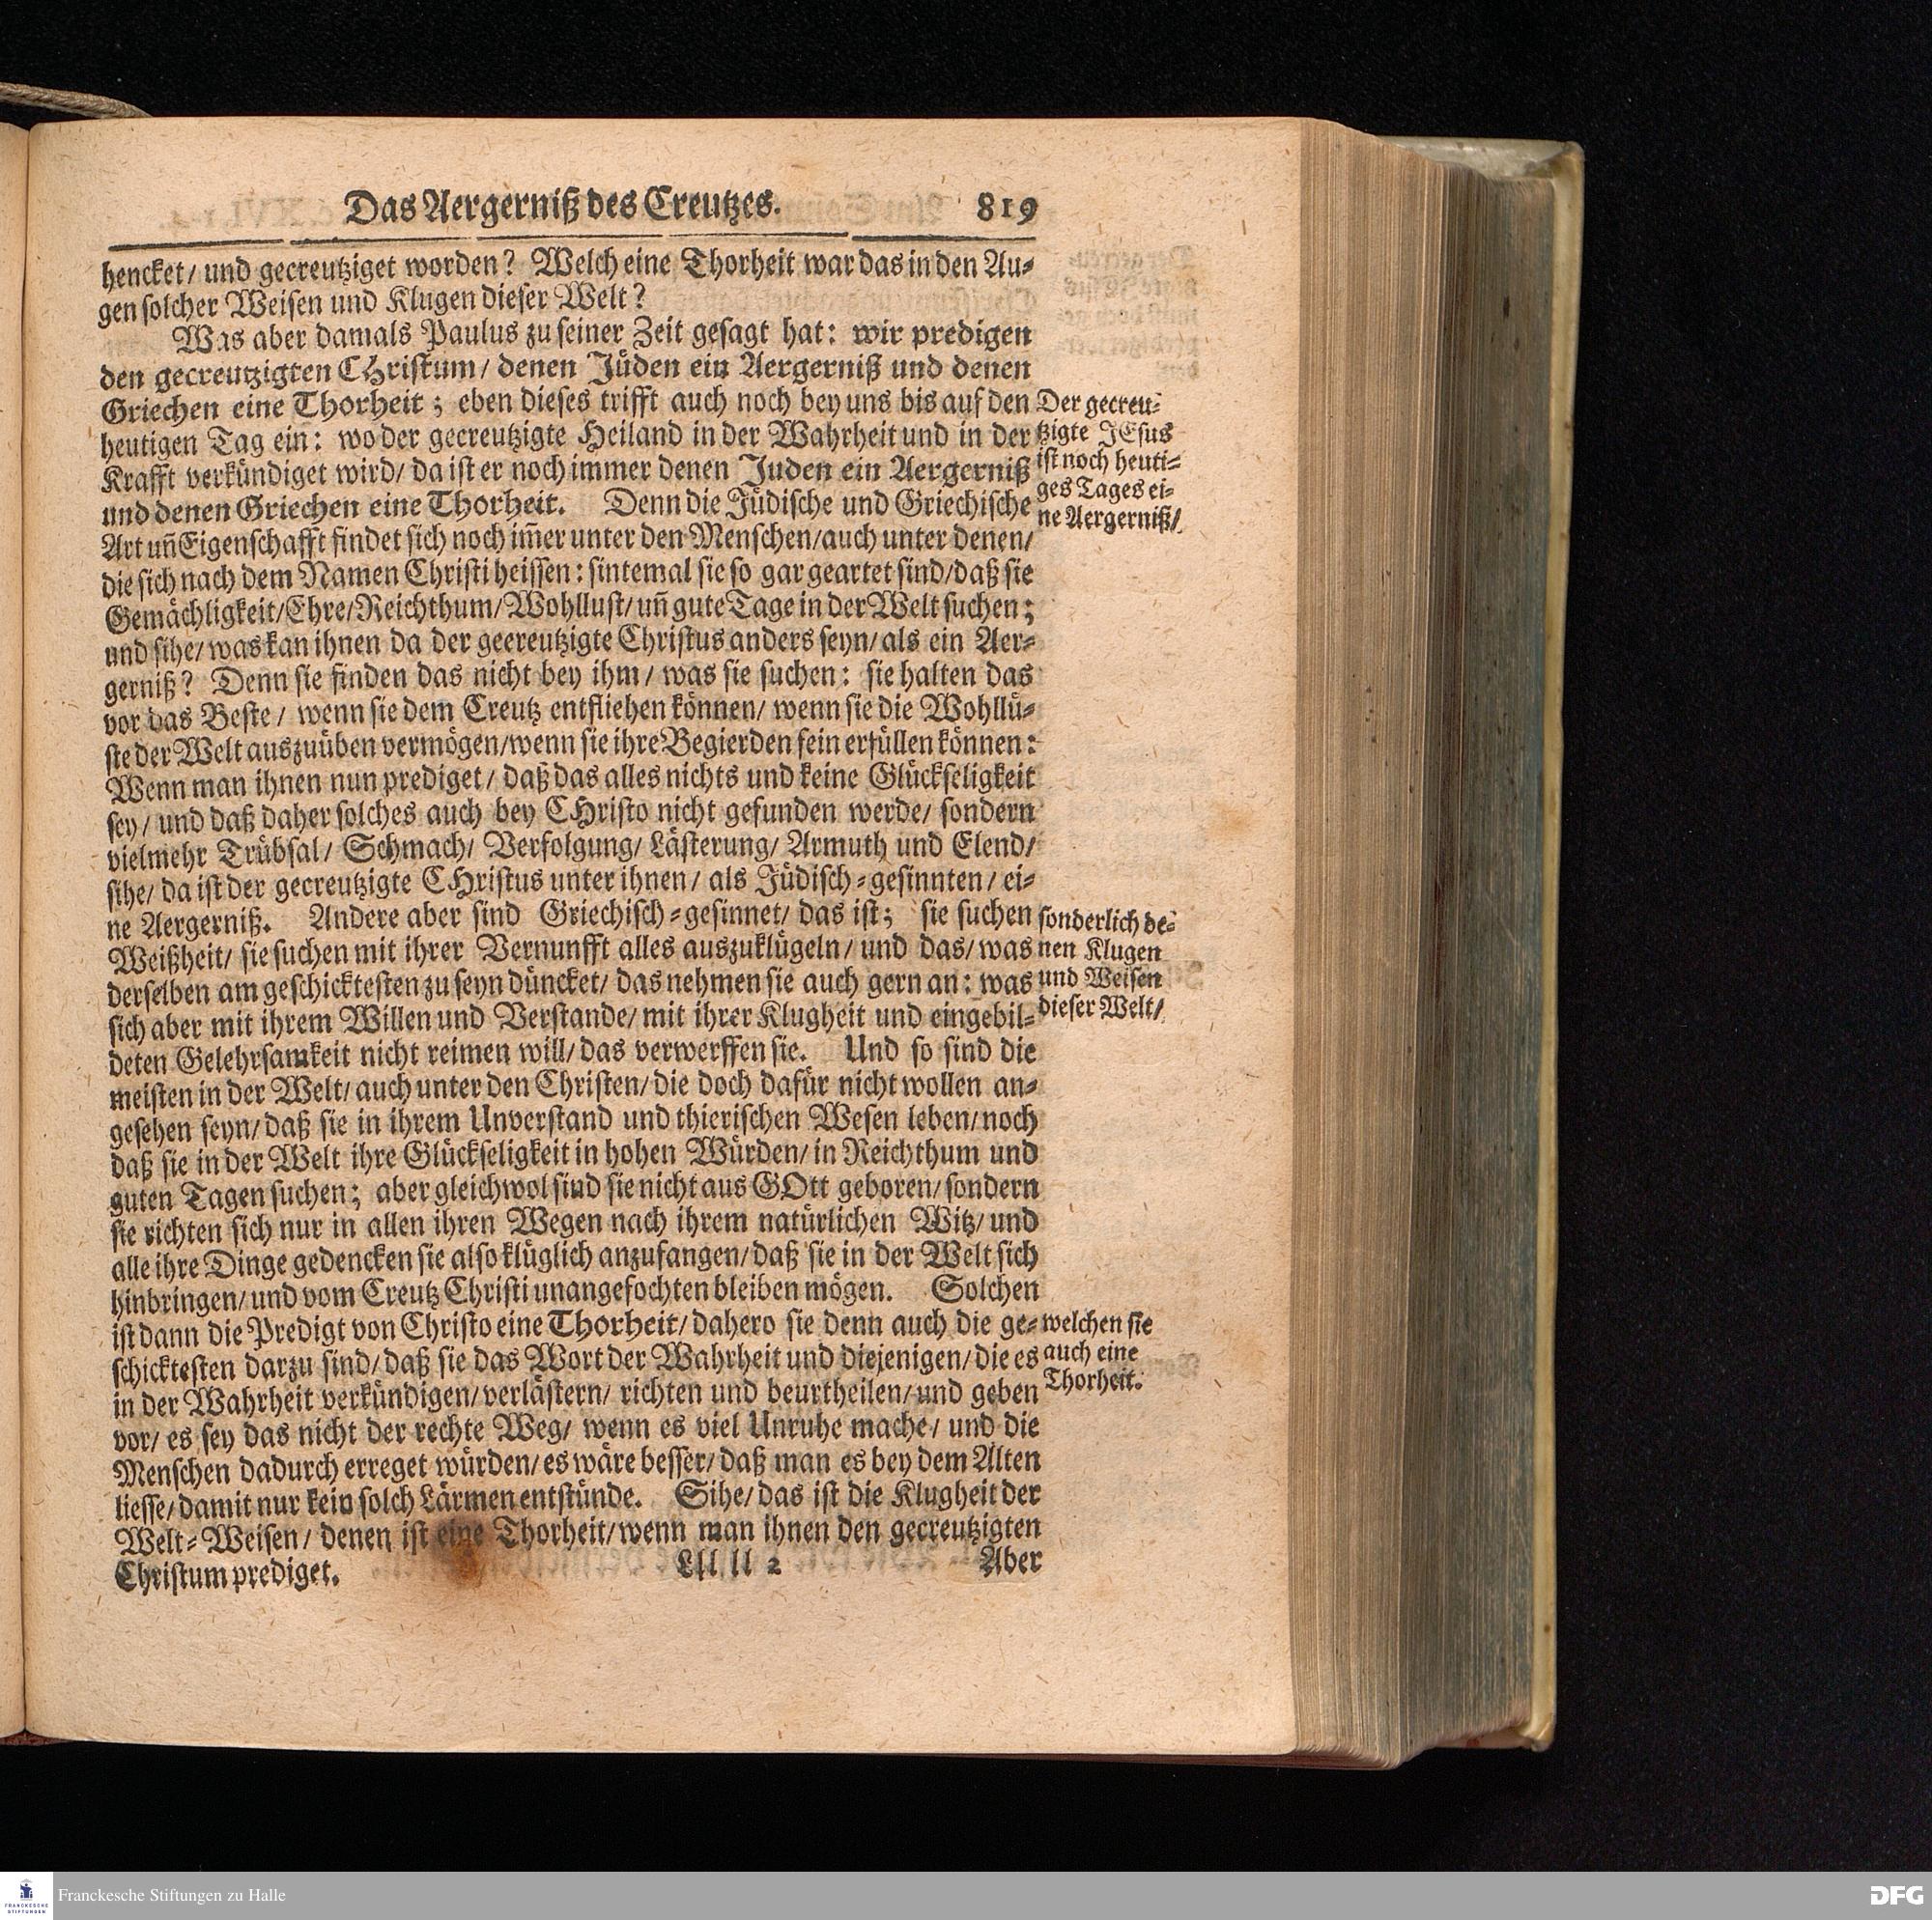 Das Aergerniß des Creutzes. 819
hencket/ und gecreutziget worden? Welch eine Thorheit war das in den Au-
gen solcher Weisen und Klugen dieser Welt?
Was aber damals Paulus zu seiner Zeit gesagt hat: wir predigen
den gecreutzigten CHristum/ denen Jüden ein Aergerniß und denen
Griechen eine Thorheit; eben dieses trifft auch noch bey uns bis auf den
heutigen Tag ein: wo der gecreutzigte Heiland in der Wahrheit und in der
Krafft verkündiget wird/ da ist er noch immer denen Juden ein Aergerniß
und denen Griechen eine Thorheit. Denn die Jüdische und Griechische
Art uñ Eigenschafft findet sich noch im̃er unter den Menschen/ auch unter denen/
die sich nach dem Namen Christi heissen: sintemal sie so gar geartet sind/ daß sie
Gemächligkeit/ Ehre/ Reichthum/ Wohllust/ uñ gute Tage in der Welt suchen;
und sihe/ was kan ihnen da der geereutzigte Christus anders seyn/ als ein Aer-
gerniß? Denn sie finden das nicht bey ihm/ was sie suchen: sie halten das
vor das Beste/ wenn sie dem Creutz entfliehen können/ wenn sie die Wohllü-
ste der Welt auszuüben vermögen/ wenn sie ihre Begierden fein erfüllen können:
Wenn man ihnen nun prediget/ daß das alles nichts und keine Glückseligkeit
sey/ und daß daher solches auch bey CHristo nicht gefunden werde/ sondern
vielmehr Trübsal/ Schmach/ Verfolgung/ Lästerung/ Armuth und Elend/
sihe/ da ist der gecreutzigte CHristus unter ihnen/ als Jüdisch-gesinnten/ ei-
ne Aergerniß. Andere aber sind Griechisch-gesinnet/ das ist; sie suchen
Weißheit/ sie suchen mit ihrer Vernunfft alles auszuklügeln/ und das/ was
derselben am geschicktesten zu seyn düncket/ das nehmen sie auch gern an: was
sich aber mit ihrem Willen und Verstande/ mit ihrer Klugheit und eingebil-
deten Gelehrsamkeit nicht reimen will/ das verwerffen sie. Und so sind die
meisten in der Welt/ auch unter den Christen/ die doch dafür nicht wollen an-
gesehen seyn/ daß sie in ihrem Unverstand und thierischen Wesen leben/ noch
daß sie in der Welt ihre Glückseligkeit in hohen Würden/ in Reichthum und
guten Tagen suchen; aber gleichwol sind sie nicht aus GOtt geboren/ sondern
sie richten sich nur in allen ihren Wegen nach ihrem natürlichen Witz/ und
alle ihre Dinge gedencken sie also klüglich anzufangen/ daß sie in der Welt sich
hinbringen/ und vom Creutz Christi unangefochten bleiben mögen. Solchen
ist dann die Predigt von Christo eine Thorheit/ dahero sie denn auch die ge-
schicktesten darzu sind/ daß sie das Wort der Wahrheit und diejenigen/ die es
in der Wahrheit verkündigen/ verlästern/ richten und beurtheilen/ und geben
vor/ es sey das nicht der rechte Weg/ wenn es viel Unruhe mache/ und die
Menschen dadurch erreget würden/ es wäre besser/ daß man es bey dem Alten
liesse/ damit nur kein solch Lärmen entstünde. Sihe/ das ist die Klugheit der
Welt-Weisen/ denen ist eine Thorheit/ wenn man ihnen den gecreutzigten
Christum prediget.
Lll ll 2 Aber
Der gecreu-
tzigte JEsus
ist noch heuti-
ges Tages ei-
ne Aergerniß/
sonderlich de-
nen Klugen
und Weisen
dieser Welt/
welchen sie
auch eine
Thorheit.
FRANCKESCHE STIFTUNGEN
Franckesche Stiftungen zu Halle
DFG